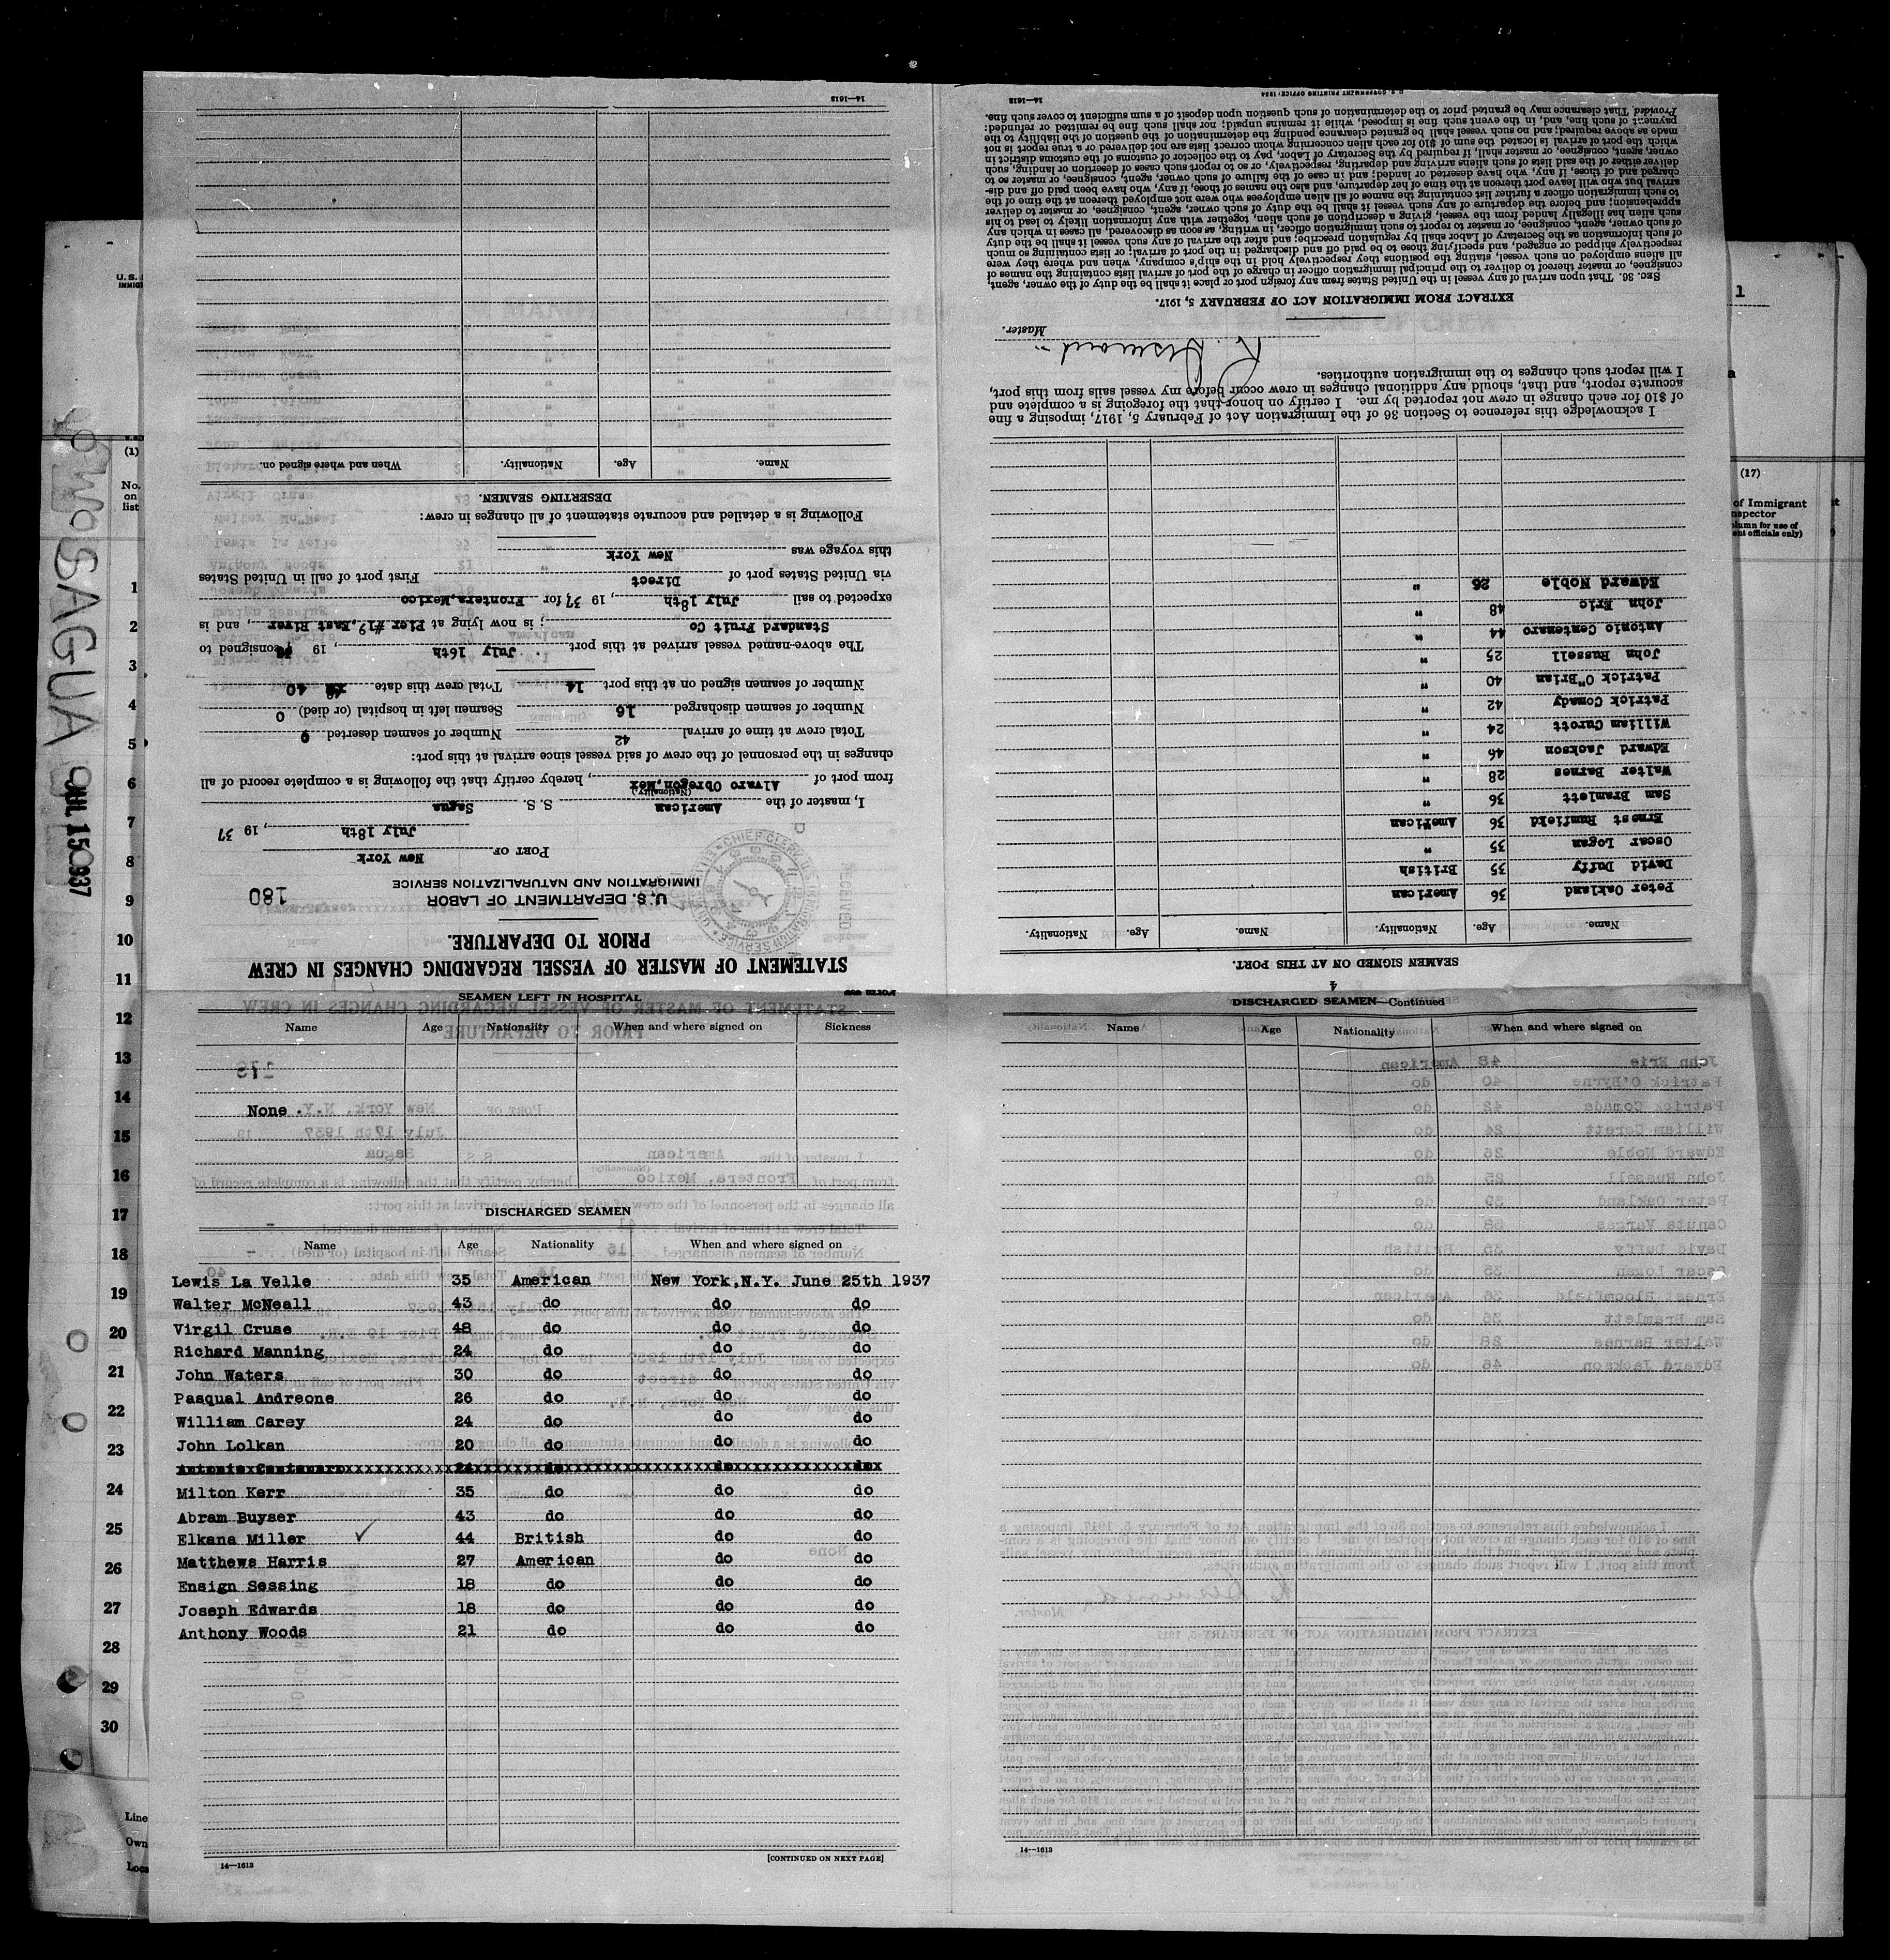 STATEMENT OF MASTER OF VESSEL REGARDING CHANGES IN CREW
PRIOR TO DEPARTURE.
U. S. DEPARTMENT OF LABOR
IMMIGRATION AND NATURALIZATION SERVICE
180
PORT OF New York
July 18th, 19 37
I, master of the American S. S. Sagua
(Nationality)
from port of Alvaro Obregon,Mex, hereby certify that the following is a complete record of all
changes in the personnel of the crew of said vessel since arrival at this port:
Total crew at time of arrival 42 Number of seamen deserted 0
Number of seamen discharged 16 Seamen left in hospital (or died) 0
Number of seamen signed on at this port 14 Total crew this date 40
The above-named vessel arrived at this port July 16th, 19 consigned to
Standard Fruit Co; is now lying at Pier #19,East River, and is
expected to sail July 18th, 19 37, for Frontera,Mexico
via United States port of Direct First port of call in United States
this voyage was New York
Following is a detailed and accurate statement of all changes in crew:
DESERTING SEAMEN.
Name. Age. Nationality. When and where signed on.
14—1613
SEAMEN SIGNED ON AT THIS PORT.
Name. Age. Nationality. Name. Age. Nationality.
Peter Oakland 36 American
David Duffy 35 British
Oscar Logan 35 "
Ernest Rumfield 36 American
Sam Bramlett 36 "
Walter Barnes 28 "
Edward Jackson 46 "
William Curott 24 "
Patrick Comady 42 "
Patrick O"Brian 40 "
John Russell 25 "
Antonio Centenaro 44 "
John Eric 48 "
Edward Noble 26 "
I acknowledge this reference to Section 36 of the Immigration Act of February 5, 1917, imposing a fine
of $10 for each change in crew not reported by me. I certify on honor that the foregoing is a complete and
accurate report, and that, should any additional changes in crew occur before my vessel sails from this port,
I will report such changes to the immigration authorities.
Master.
EXTRACT FROM IMMIGRATION ACT OF FEBRUARY 5, 1917.
SEC. 36. That upon arrival of any vessel in the United States from any foreign port or place it shall be the duty of the owner, agent,
consignee, or master thereof to deliver to the principal immigration officer in charge of the port of arrival lists containing the names of
all aliens employed on such vessel, stating the positions they respectively hold in the ship's company, when and where they were
respectively shipped or engaged, and specifying those to be paid off and discharged in the port of arrival; or lists containing so much
of such information as the Secretary of Labor shall by regulation prescribe; and after the arrival of any such vessel it shall be the duty
of such owner, agent, consignee, or master to report to such immigration officer, in writing, as soon as discovered, all cases in which any
such alien has illegally landed from the vessel, giving a description of such alien, together with any information likely to lead to his
apprehension; and before the departure of any such vessel it shall be the duty of such owner, agent, consignee, or master to deliver
to such immigration officer a further list containing the names of all alien employees who were not employed thereon at the time of the
arrival but who will leave port thereon at the time of her departure, and also the names of those, if any, who have been paid off and dis-
charged and of those, if any, who have deserted or landed; and in case of the failure of such owner, agent, consignee, or master so to
deliver either of the said lists of such aliens arriving and departing, respectively, or so to report such cases of desertion or landing, such
owner, agent, consignee, or master shall, if required by the Secretary of Labor, pay to the collector of customs of the customs district in
which the port of arrival is located the sum of $10 for each alien concerning whom correct lists are not delivered or a true report is not
made as above required; and no such vessel shall be granted clearance pending the determination of the question of the liability to the
payment of such fine, and, in the event such fine is imposed, while it remains unpaid; nor shall such fine be remitted or refunded:
Provided, That clearance may be granted prior to the determination of such question upon deposit of a sum sufficient to cover such fine.
14—1613
U. S. GOVERNMENT PRINTING OFFICE: 1934
SEAMEN LEFT IN HOSPITAL
Name Age Nationality When and where signed on Sickness
None
DISCHARGED SEAMEN
Name Age Nationality When and where signed on
Lewis La Velle 35 American New York,N.Y. June 25th 1937
Walter McNeall 43 do do do
Virgil Cruse 48 do do do
Richard Manning 24 do do do
John Waters 30 do do do
Pasqual Andreone 26 do do do
William Carey 24 do do do
John Lolkan 20 do do do
Milton Kerr 35 do do do
Abram Buyser 43 do do do
Elkana Miller 44 British do do
Matthews Harris 27 American do do
Ensign Sessing 18 do do do
Joseph Edwards 18 do do do
Anthony Woods 21 do do do
14—1613
[CONTINUED ON NEXT PAGE]
4
DISCHARGED SEAMEN—Continued
Name Age Nationality When and where signed on
14—1613
SAGUA
JUL 15 1937
U.S.
IMMIG
(1)
No.
on
list
1
2
3
4
5
6
7
8
9
10
11
12
13
14
15
16
17
18
19
20
21
22
23
24
25
26
27
28
29
30
Line
Own
Loca
1
(17)
of Immigrant